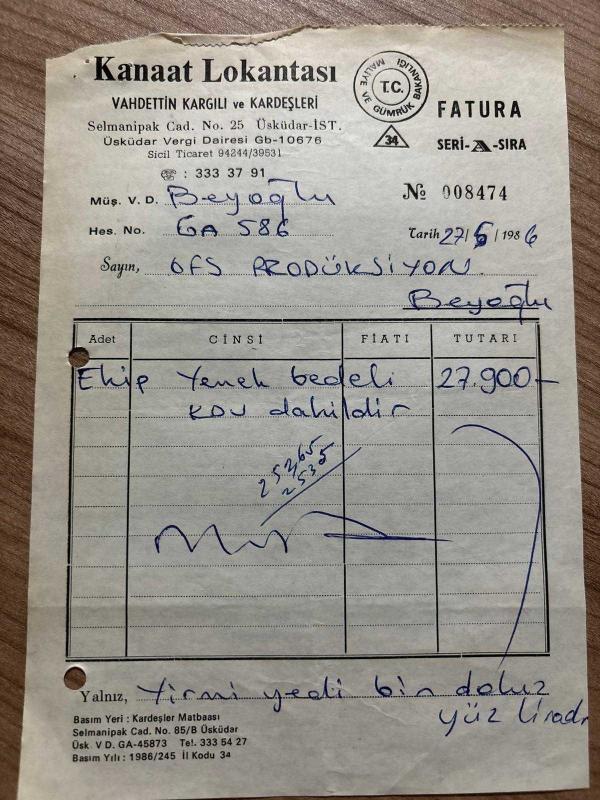 Kanaat Lokantası
VAHDETTİN KARGILI ve KARDEŞLERİ
Selmanipak Cad. No. 25 Üsküdar-İST.
Üsküdar Vergi Dairesi Gb-10676
Sicil Ticaret 94244/39531
☎ : 333 37 91
MALİYE VE GÜMRÜK BAKANLIĞI
T.C.
34
FATURA
SERİ-A-SIRA
№ 008474
Müş. V. D. Beyoğlu
Hes. No. GA 586
Tarih 27/6/1986
Sayın, OFS PRODÜKSİYON.
Beyoğlu
Adet CİNSİ FİATI TUTARI
Ekip Yemek bedeli 27.900-
KDV dahildir
25365
2535
Yalnız, Yirmi yedi bin dokuz
yüz liradır
Basım Yeri : Kardeşler Matbaası
Selmanipak Cad. No. 85/B Üsküdar
Üsk V D. GA-45873 Tel. 333 54 27
Basım Yılı : 1986/245 İl Kodu 34